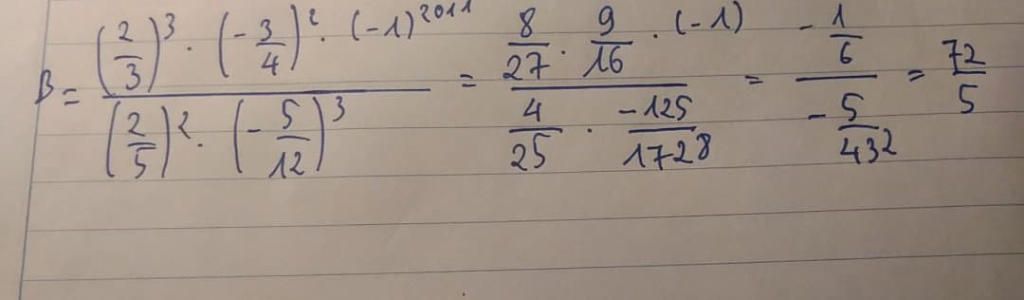 B = \frac{\left(\frac{2}{3}\right)^3 \cdot \left(-\frac{3}{4}\right)^2 \cdot (-1)^{2011}}{\left(\frac{2}{5}\right)^2 \cdot \left(-\frac{5}{12}\right)^3} = \frac{\frac{8}{27} \cdot \frac{9}{16} \cdot (-1)}{\frac{4}{25} \cdot \frac{-125}{1728}} = \frac{-\frac{1}{6}}{-\frac{5}{432}} = \frac{72}{5}